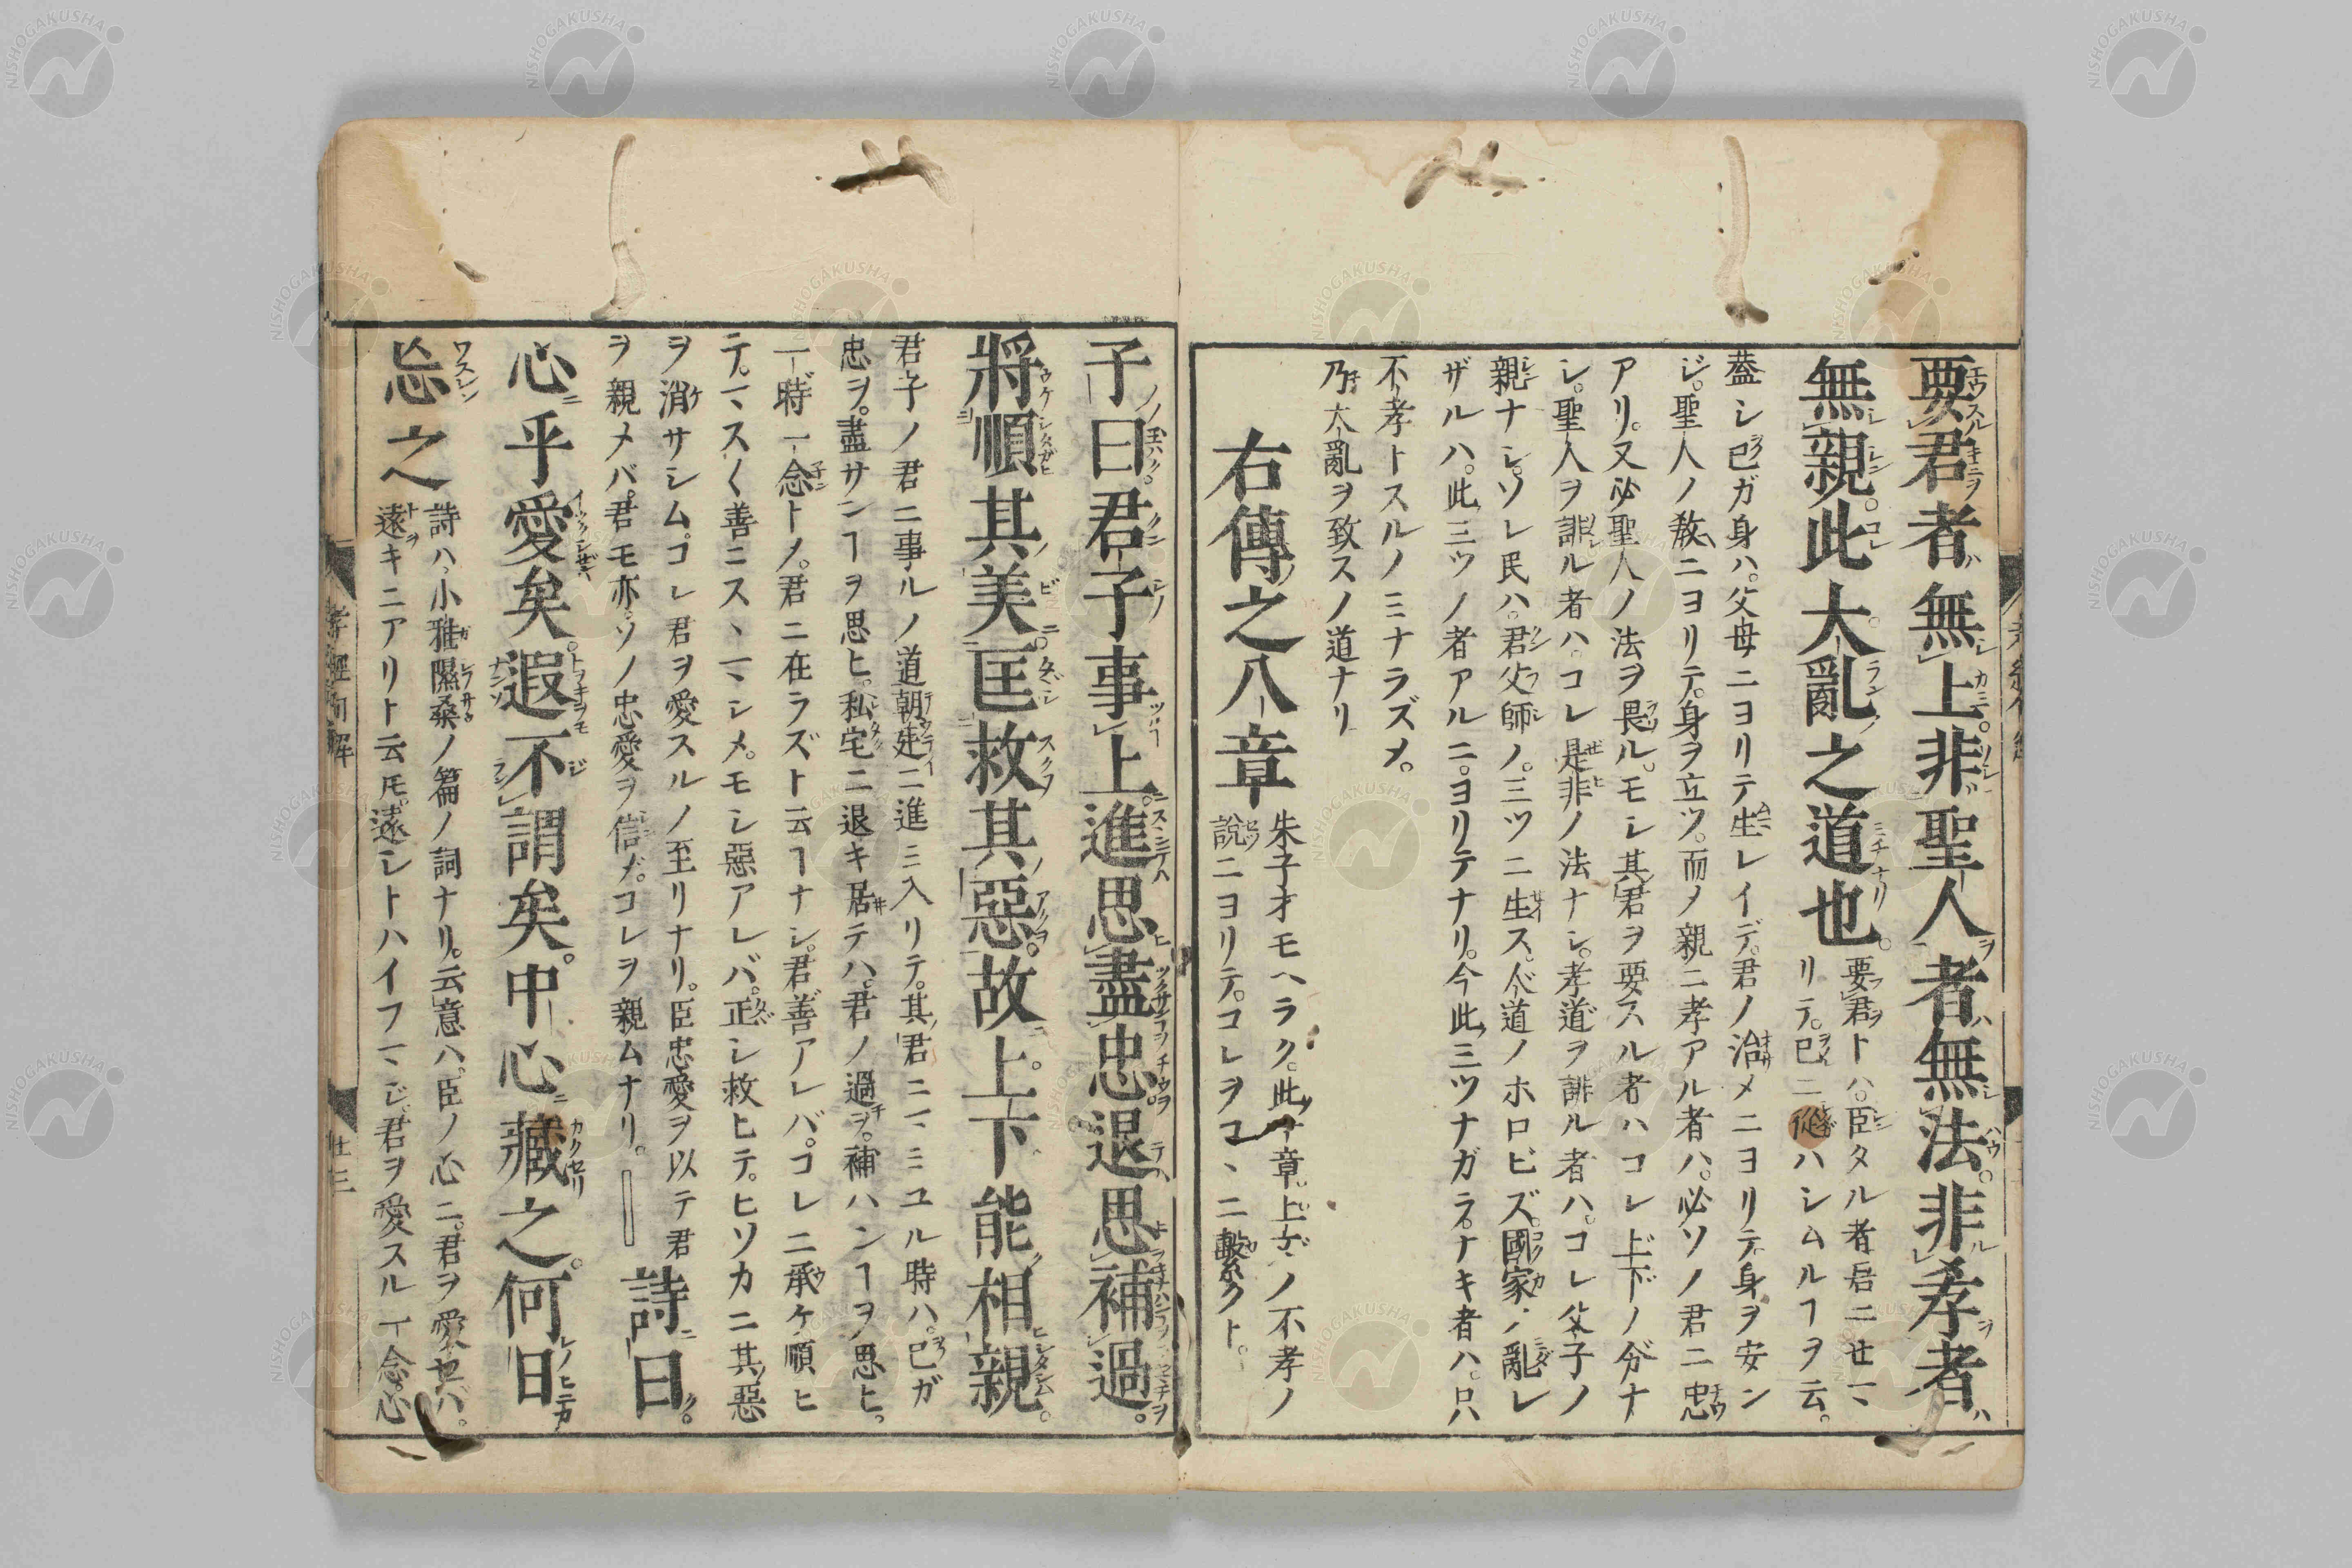 要君者無上非聖人者無法非孝者
無親此大亂之道也
要君トハ臣タル者君ニせマ丶
リテ己ニ從ハシムルヿヲ云
蓋シ己ガ身ハ父母ニヨリテ生レイデ君ノ治メニヨリテ身ヲ安ン
ジ聖人ノ教ニヨリテ身ヲ立ツ而ノ親ニ孝アル者ハ必ソノ君ニ忠
アリ又必聖人ノ法ヲ畏ルモシ其君ヲ要スル者ハコレ上下ノ分ナ
シ聖人ヲ誹ル者ハコレ是非ノ法ナシ孝道ヲ誹ル者ハコレ父子ノ
親ナシソレ民ハ君父師ノ三ツニ生ス人道ノホロビズ國家ノ亂レ
ザルハ此三ツノ者アルニヨリテナリ今此三ツナガラナキ者ハ只
不孝トスルノミナラズメ
乃大亂ヲ致スノ道ナリ
右傳之八章
朱子オモヘラク此章上ノ不孝ノ
説ニヨリテコレヲコ丶ニ繫クト
子曰君子事上進思盡忠退思補過
將順其美匡救其惡故上下能相親
君子ノ君ニ事ルノ道朝廷ニ進ミ入リテ其君ニマミユル時ハ己ガ
忠ヲ盡サンヿヲ思ヒ私宅ニ退キ居テハ君ノ過ヲ補ハンヿヲ思ヒ
一時一念トノ君ニ在ラズト云ヿナシ君善アレバコレニ承ケ順ヒ
テマスく善ニス丶マシメモシ惡アレバ正シ救ヒテヒソカニ其惡
ヲ消サシムコレ君ヲ愛スルノ至リナリ臣忠愛ヲ以テ君
ヲ親メバ君モ亦ソノ忠愛ヲ信メコレヲ親ムナリ
詩曰
心乎愛矣遐不謂矣中心藏之何日
忘之
詩ハ小雅隰桑ノ篇ノ詞ナリ云意ハ臣ノ心ニ君ヲ愛せバ
遠キニアリト云𪜈遠シトハイフマジ君ヲ愛スルノ一念心
孝經句解
廿三